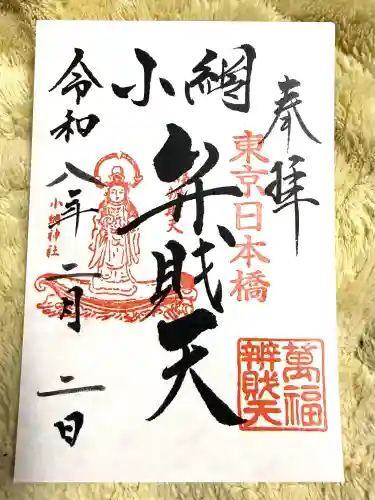 奉拝
東京日本橋
小網
弁財天
萬福
辨財天
小網神社
令和八年二月二日